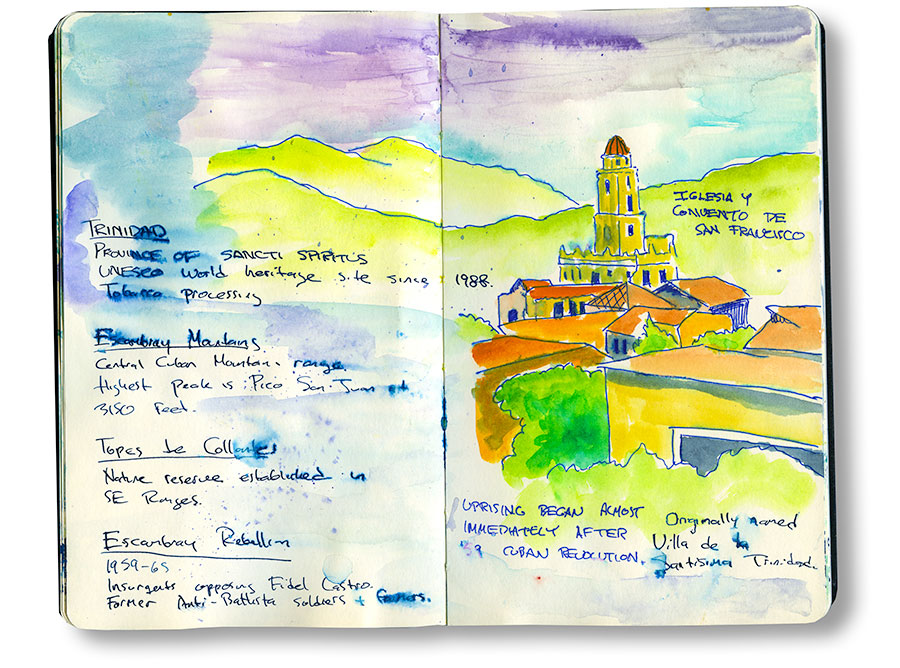 TRINIDAD
PROVINCE OF SANCTI SPIRITUS
UNESCO World heritage site since 1988.
Tobacco processing
Escambray Mountains.
Central Cuban Mountain range
Highest peak is Pico San Juan at
3150 feet.
Topes de Collantes
Nature reserve established in
SE Ranges.
Escambray Rebellion
1959-65
Insurgents opposing Fidel Castro.
Former Anti-Battista soldiers + farmers.
IGLESIA Y
CONVENTO DE
SAN FRANCISCO
UPRISING BEGAN ALMOST
IMMEDIATELY AFTER
CUBAN REVOLUTION.
Originally named
Villa de la
Santisima Trinidad.